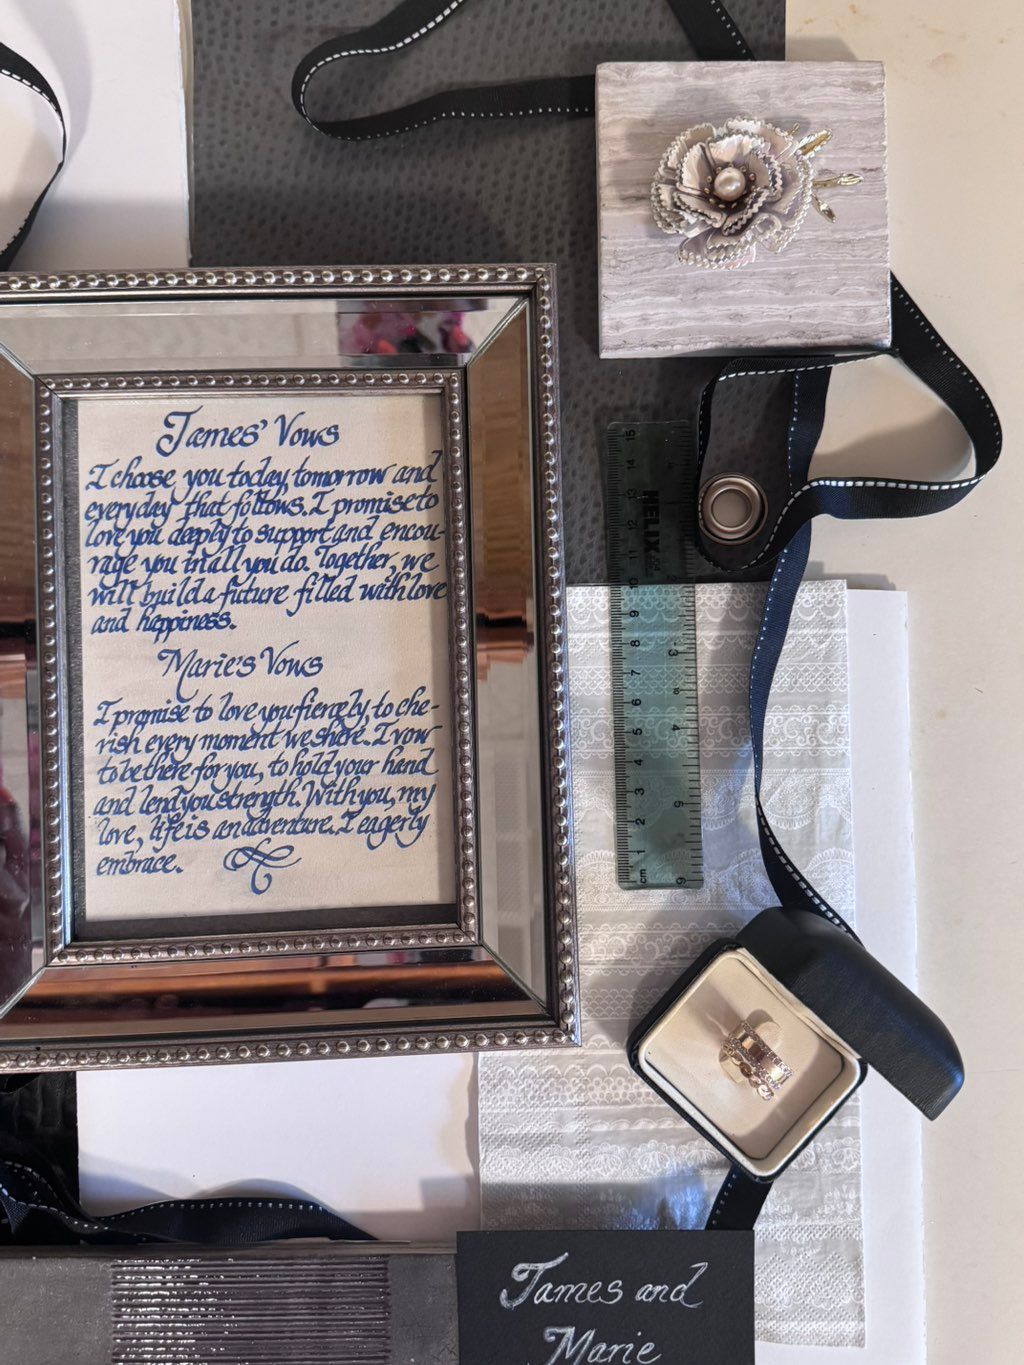 James' Vows
I choose you today, tomorrow and
everyday that follows. I promise to
love you deeply to support and encou-
rage you in all you do. Together, we
will build a future filled with love
and happiness.
Marie's Vows
I promise to love you fiercely, to che-
rish every moment we share. I vow
to be there for you, to hold your hand
and lend you strength. With you, my
love, life is an adventure. I eagerly
embrace.
HELIX
15
14
13
12
11
10
9
8
7
6
5
4
3
2
1
cm
3
4
5
6
James and
Marie